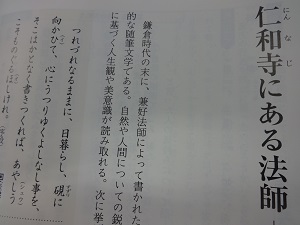 仁和寺にある法師
にんなじ
鎌倉時代の末に、兼好法師によって書かれた
的な随筆文学である。自然や人間についての鋭
に基づく人生観や美意識が読み取れる。次に挙
つれづれなるままに、日暮らし、硯に
向かひて、心にうつりゆくよしなし事を、
そこはかとなく書きつくれば、あやしう
こそものぐるほしけれ。